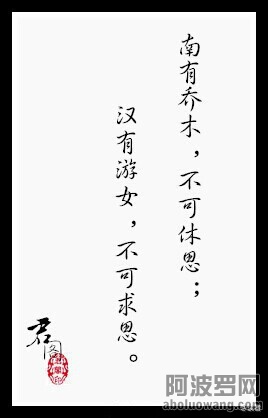 南有乔木，不可休思；
汉有游女，不可求思。
君
阿波罗网
aboluowang.com